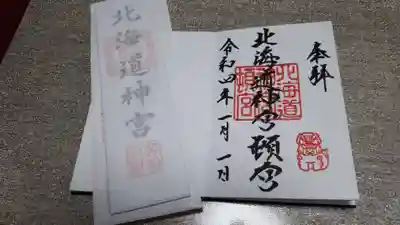 奉拝
北海道神宮頓宮
令和四年一月一日
北海道神宮